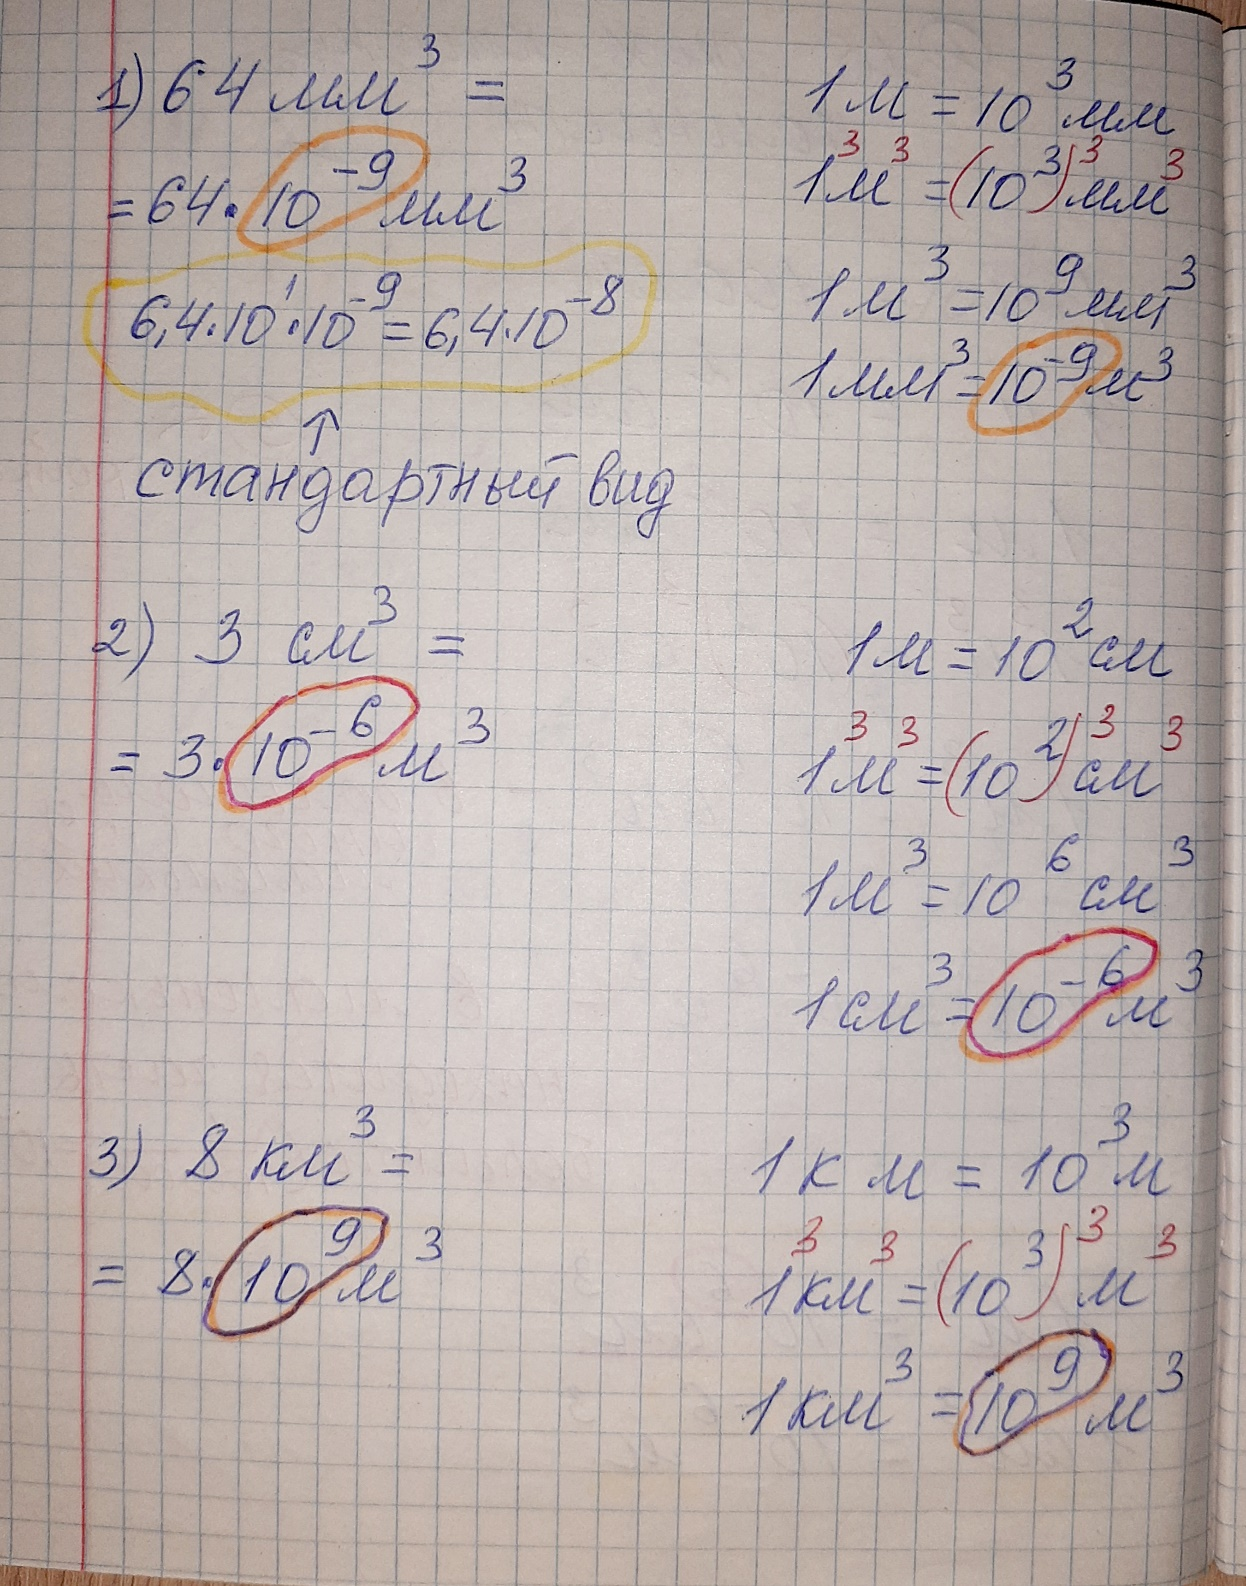 1) 64 мм³ =
= 64 · 10⁻⁹ мм³
6,4·10¹·10⁻⁹ = 6,4·10⁻⁸
↑
стандартный вид
1м = 10³ мм
1³м³ = (10³)³ мм³
1м³ = 10⁹ мм³
1мм³ = 10⁻⁹ м³
2) 3 см³ =
= 3 · 10⁻⁶ м³
1м = 10² см
1³м³ = (10²)³ см³
1м³ = 10⁶ см³
1см³ = 10⁻⁶ м³
3) 8 км³ =
= 8 · 10⁹ м³
1км = 10³ м
1³км³ = (10³)³ м³
1км³ = 10⁹ м³